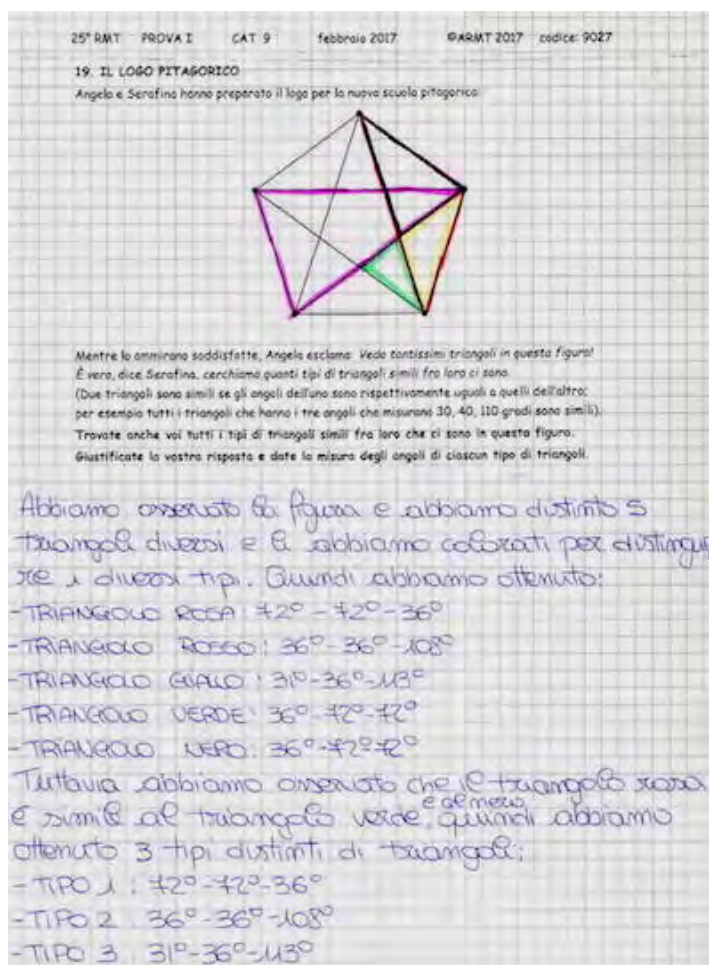 25° RMT PROVA I CAT 9 febbraio 2017 ©ARMT 2017 codice: 9027
19. IL LOGO PITAGORICO
Angela e Serafina hanno preparato il logo per la nuova scuola pitagorica:
Mentre lo ammirano soddisfatte, Angela esclama: Vedo tantissimi triangoli in questa figura!
È vero, dice Serafina, cerchiamo quanti tipi di triangoli simili fra loro ci sono.
(Due triangoli sono simili se gli angoli dell'uno sono rispettivamente uguali a quelli dell'altro;
per esempio tutti i triangoli che hanno i tre angoli che misurano 30, 40, 110 gradi sono simili).
Trovate anche voi tutti i tipi di triangoli simili fra loro che ci sono in questa figura.
Giustificate la vostra risposta e date la misura degli angoli di ciascun tipo di triangoli.
Abbiamo osservato la figura e abbiamo distinto 5
triangoli diversi e li abbiamo colorati per distingue
re i diversi tipi. Quindi abbiamo ottenuto:
-TRIANGOLO ROSA: 72° - 72° - 36°
-TRIANGOLO ROSSO: 36° - 36° - 108°
-TRIANGOLO GIALLO: 31° - 36° - 113°
-TRIANGOLO VERDE: 36° - 72° - 72°
-TRIANGOLO NERO: 36° - 72° - 72°
Tuttavia abbiamo osservato che il triangolo rosa
è simile al triangolo verde, e al nero quindi abbiamo
ottenuto 3 tipi distinti di triangoli:
- TIPO 1: 72° - 72° - 36°
- TIPO 2: 36° - 36° - 108°
- TIPO 3: 31° - 36° - 113°